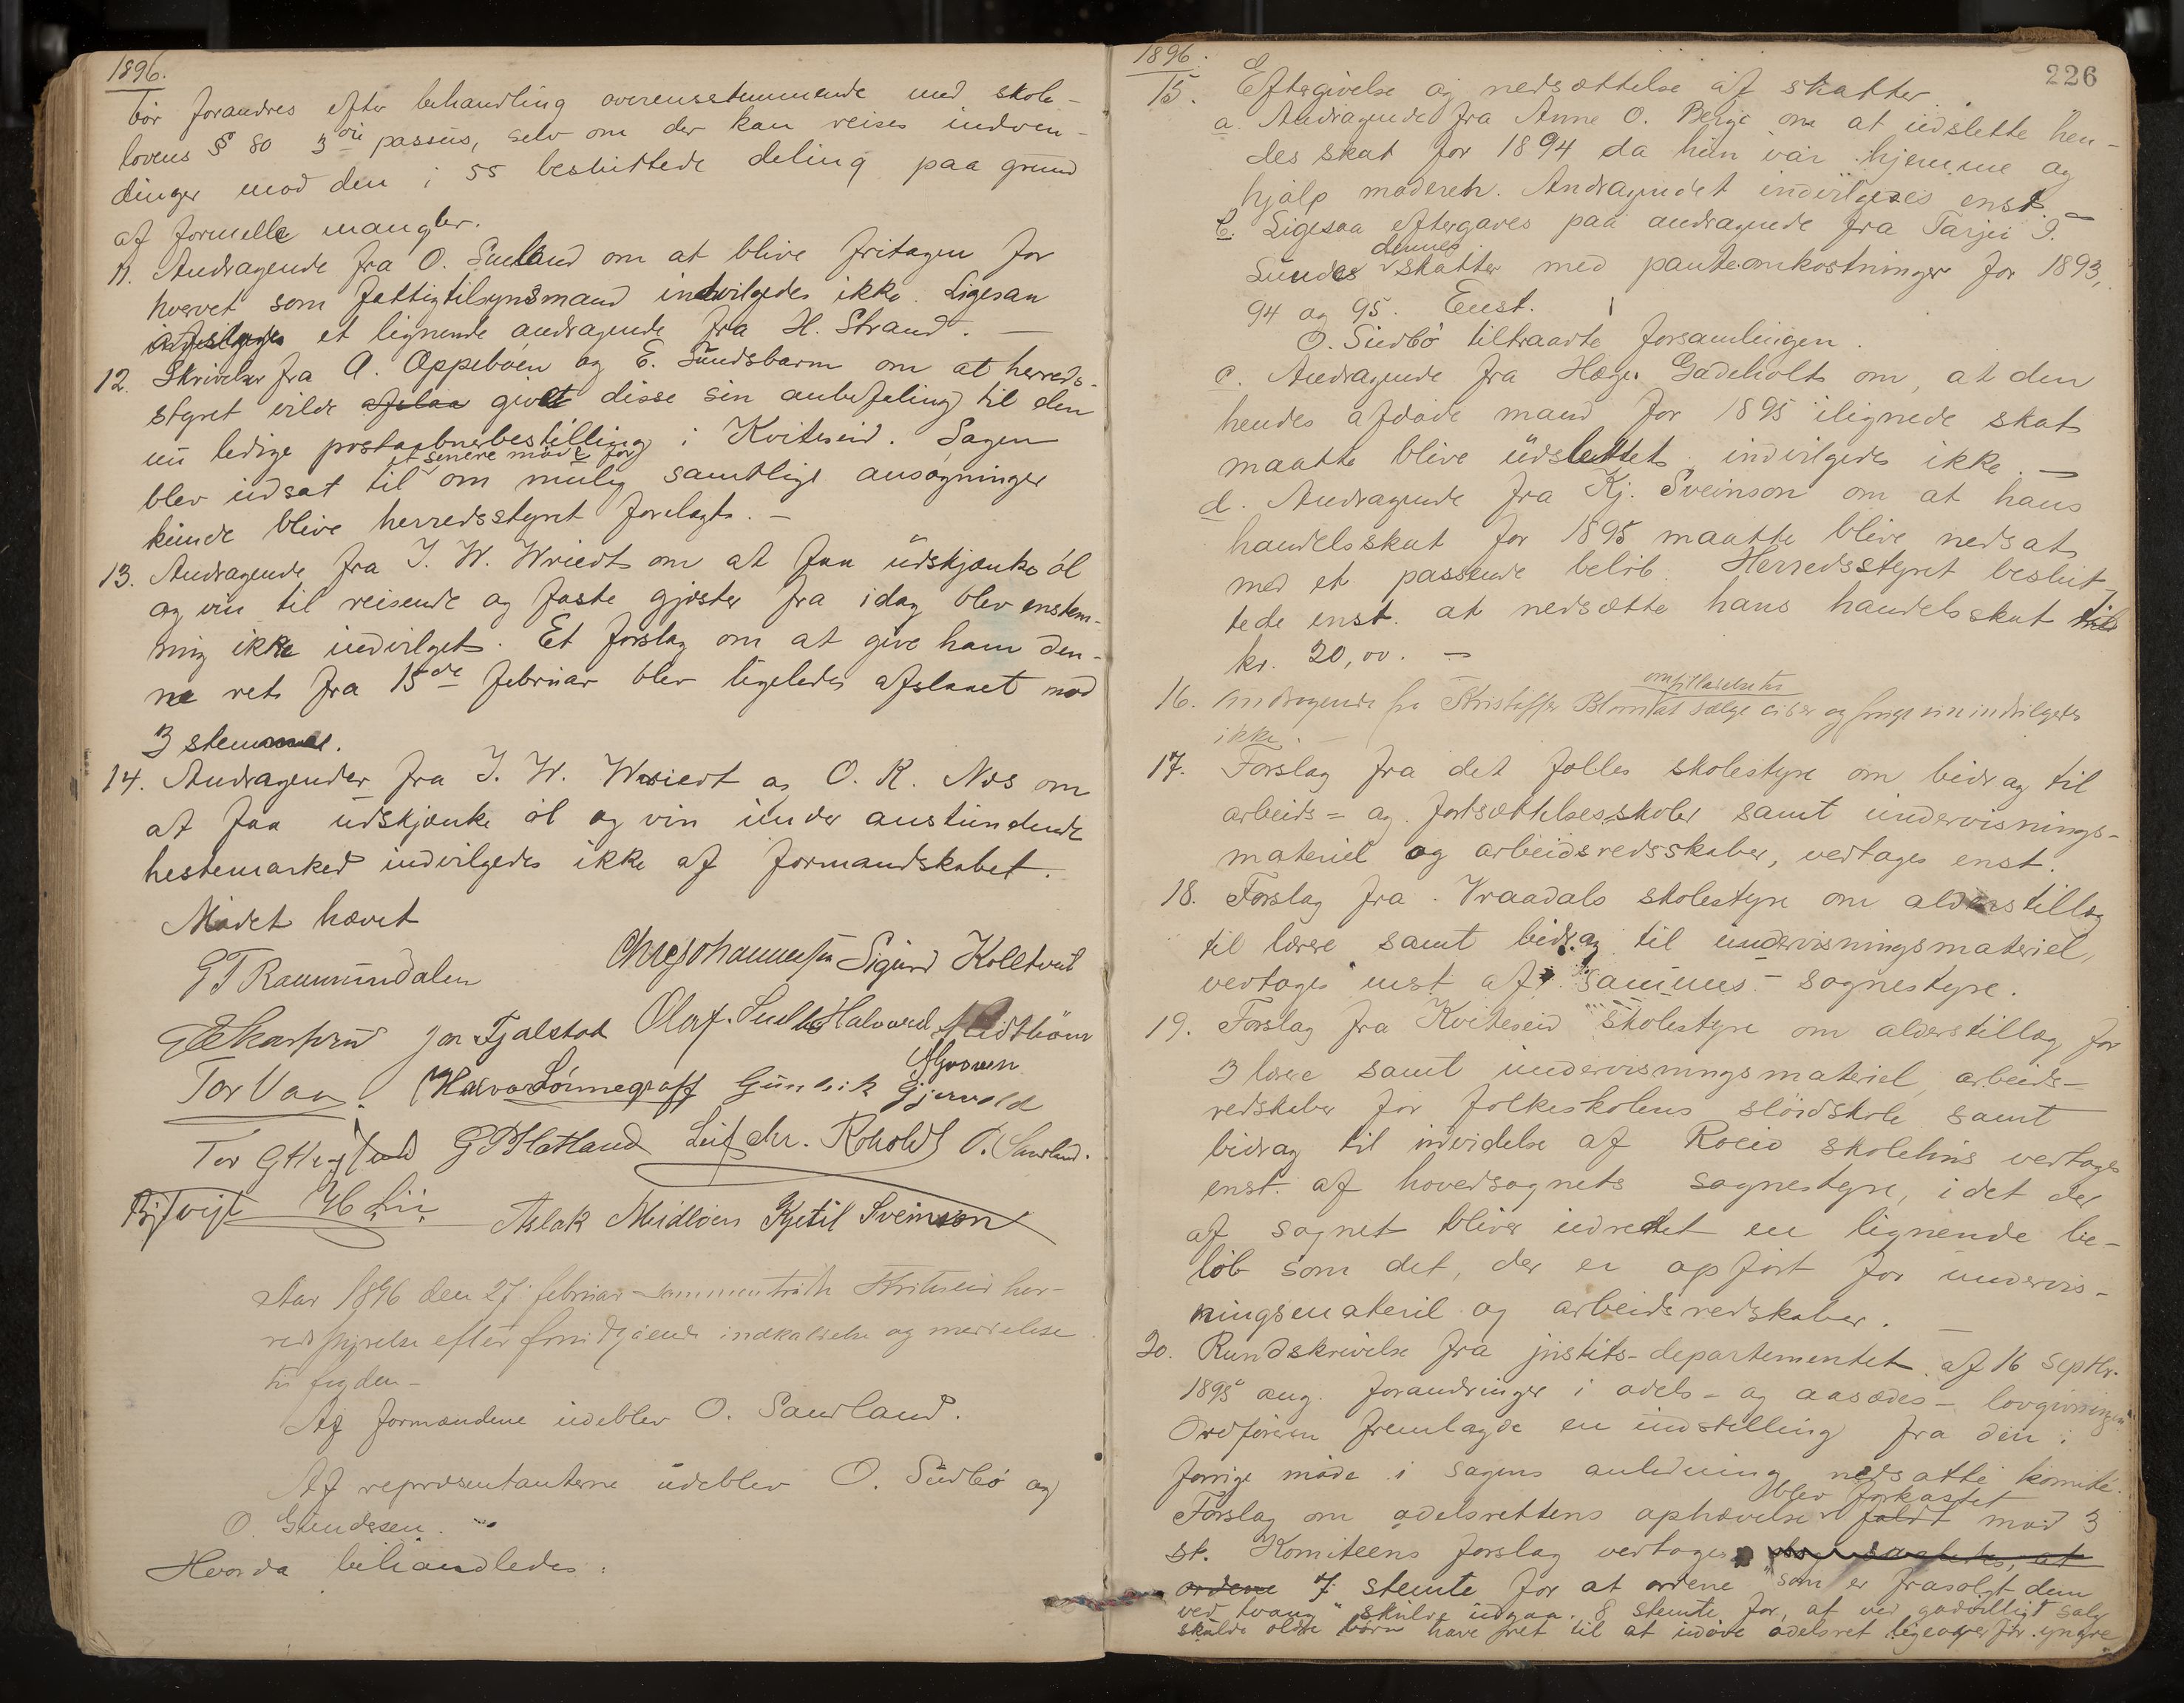 1896.
bör forandres efter behandling overensstemmende med skole-
lovens § 80 3die passus, selv om der kan reises indven-
dinger mod den i 55 besluttede deling paa grund
af formelle mangler.
11. Andragende fra O. Sueland om at blive fritagen for
hvervet som fattigtilsynsmand indvilgedes ikke. Ligesaa
afsloges et lignende andragende fra H. Strand. —
12. Skrivelser fra A. Oppeböen og E. Sundsbarm om at herreds-
styret vilde afslaa givet disse sin anbefaling til den
nu ledige postaabnerbestilling i Kviteseid. Sagen
et senere møde for
blev udsat til om mulig samtlige ansøgninger
kunde blive herredsstyret forelagt. —
13. Andragende fra J. W. Wriedt om at faa udskjænke öl
og vin til reisende og faste gjester fra idag blev enstem-
mig ikke indvilget. Et forslag om at give ham den-
ne ret fra 15de februar blev ligeledes afslaaet mod
3 stemmer.
14. Andragender fra J. W. Wriedt og O. K. Næs om
at faa udskjænke öl og vin under anstundende
hestemarked indvilgedes ikke af formandskabet.
Mødet hævet
G T Raumundalen
Chr Johannessen Sigurd Kolltveit
Jon Fjalstad Olaf. Sudbö Halvord
Tor Vaa. Halvor Lönnegraff Gunleik Gjervold
Tor G G P Flatland Leif chr. Roholdt O. Saurland.
H. Lii. Aslak Meidlöen Kjetil Sveinson
Aar 1896 den 27 februar sammentraadte Kviteseid her-
redsstyrelse efter foregaaende indkaldelse og meddelelse
til fogden —
Af formændene udeblev O. Saurland.
Af repræsentanterne udeblev O. Sudbö og
O. Gundesen.
Hvorda behandledes:
1896.
226
15. Eftergivelse og nedsættelse af skatter.
a. Andragende fra Anne O. Berge om at udslette hen-
des skat for 1894 da hun var hjemme og
hjalp moderen. Andragendet indvilgedes enst. —
b. Ligesaa eftergaves paa andragende fra Tarjei T.
dennes
Sundes skatter med panteomkostninger for 1893,
94 og 95. Enst.
O. Sudbö tiltraadte forsamlingen.
c. Andragende fra Hæge Gadeholt om, at den
hendes afdöde mand for 1895 ilignede skat
maatte blive udslettet indvilgedes ikke. —
d. Andragende fra Kj. Sveinson om at hans
handelsskat for 1895 maatte blive nedsat
med et passende belöb. Herredsstyret beslut-
tede enst. at nedsætte hans handelsskat til
kr. 20,00. —
om tilladelse til
16. Andragende fra Kristoffer Blom at sælge cider og frugtvin indvilgedes
ikke. —
17. Forslag fra det fælles skolestyre om bidrag til
arbeids- og fortsættelsesskoler samt undervisnings-
materiel og arbeidsredskaber, vedtages enst.
18. Forslag fra Vraadals skolestyre om alderstillæg
til lærere samt bidrag til undervisningsmateriel,
vedtages enst af sammes sognestyre.
19. Forslag fra Kviteseid skolestyre om alderstillæg for
3 lærere samt undervisningsmateriel, arbeids-
redskaber for folkeskolens slöidskole samt
bidrag til indvidelse af Roeid skolehus vedtoges
enst. af hovedsognets sognestyre, idet der
af sognet bliver udredet en lignende be-
löb som det, der er opfört for undervis-
ningsmateriel og arbeidsredskaber. —
20. Rundskrivelse fra justits-departementet af 16 septbr.
1895 ang. forandringer i odels- og aasædes-lovgivningen
Ordföreren fremlagde en indstilling fra den i
forrige möde i sagens anledning nedsatte komite.
blev forkastet
Forslag om odelsrettens ophævelse faldt mod 3
st. Komiteens forslag vedtoges
ordene 7 stemte for at ordene "som er frasolgt dem
ved tvang" skulde udgaa. 8 stemte for, at ved godvilligt salg
skulde ældre börn have ret til at udöve odelsret ligeoverfor yngre